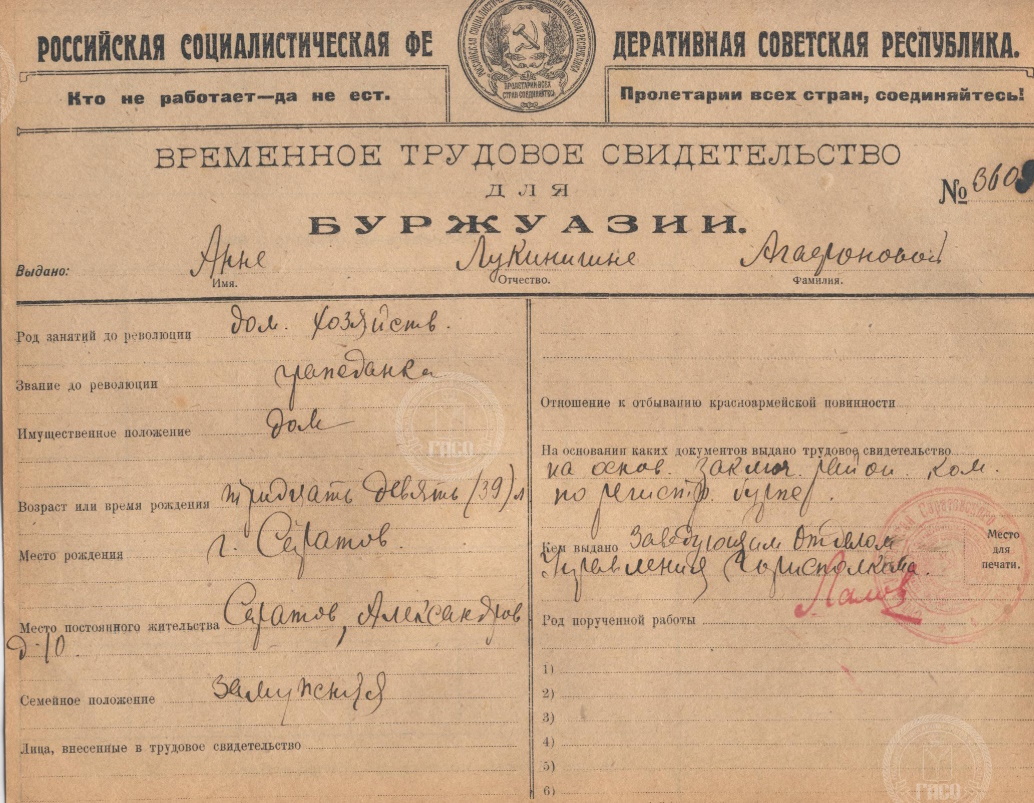 РОССИЙСКАЯ СОЦИАЛИСТИЧЕСКАЯ ФЕ ДЕРАТИВНАЯ СОВЕТСКАЯ РЕСПУБЛИКА.
ПРОЛЕТАРИИ ВСЕХ
СТРАН СОЕДИНЯЙТЕСЬ
Кто не работает—да не ест.
Пролетарии всех стран, соединяйтесь!
ВРЕМЕННОЕ ТРУДОВОЕ СВИДЕТЕЛЬСТВО
ДЛЯ
№ 3609
БУРЖУАЗИИ.
Выдано: Анне Лукинишне Агафоновой
Имя. Отчество. Фамилия.
Род занятий до революции дом. хозяйств.
Звание до революции гражданка
Имущественное положение дом
Возраст или время рождения тридцать девять (39) л
Место рождения г. Саратов.
Место постоянного жительства Саратов, Александров
д. 10
Семейное положение замужняя
Лица, внесенные в трудовое свидетельство
Отношение к отбыванию красноармейской повинности
На основании каких документов выдано трудовое свидетельство
на основ. заключ. район. ком.
по регистр. бурж.
Кем выдано Заведующим Отделом
Управления Горисполкома.
Место
для
печати.
Род порученной работы
1)
2)
3)
4)
5)
6)
ГАСО
ГАСО